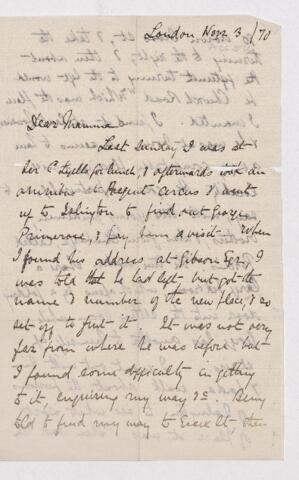 London Novr 3 /70
Dear Mamma
Last Sunday I was at
Sir C Lyells for lunch, & afterwards took an
omnibus at Regent Circus & went
up to Islington to find out George
Primrose, & pay him a visit. When
I found his address, at Gibson Sqr, I
was told that he had left but got the
name & number of the new place, & so
set off to find it. It was not very
far from where he was before but
I found some difficulty in getting
to it, enquiring my way &c. Being
told to find my way to Essex St, then